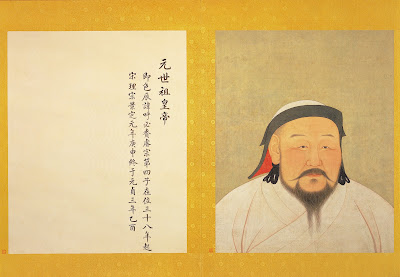 元世祖皇帝
即色辰諸呼必賚睿宗第四子在位三十八年起
宋理宗景定元年庚申終于元貞三年乙酉